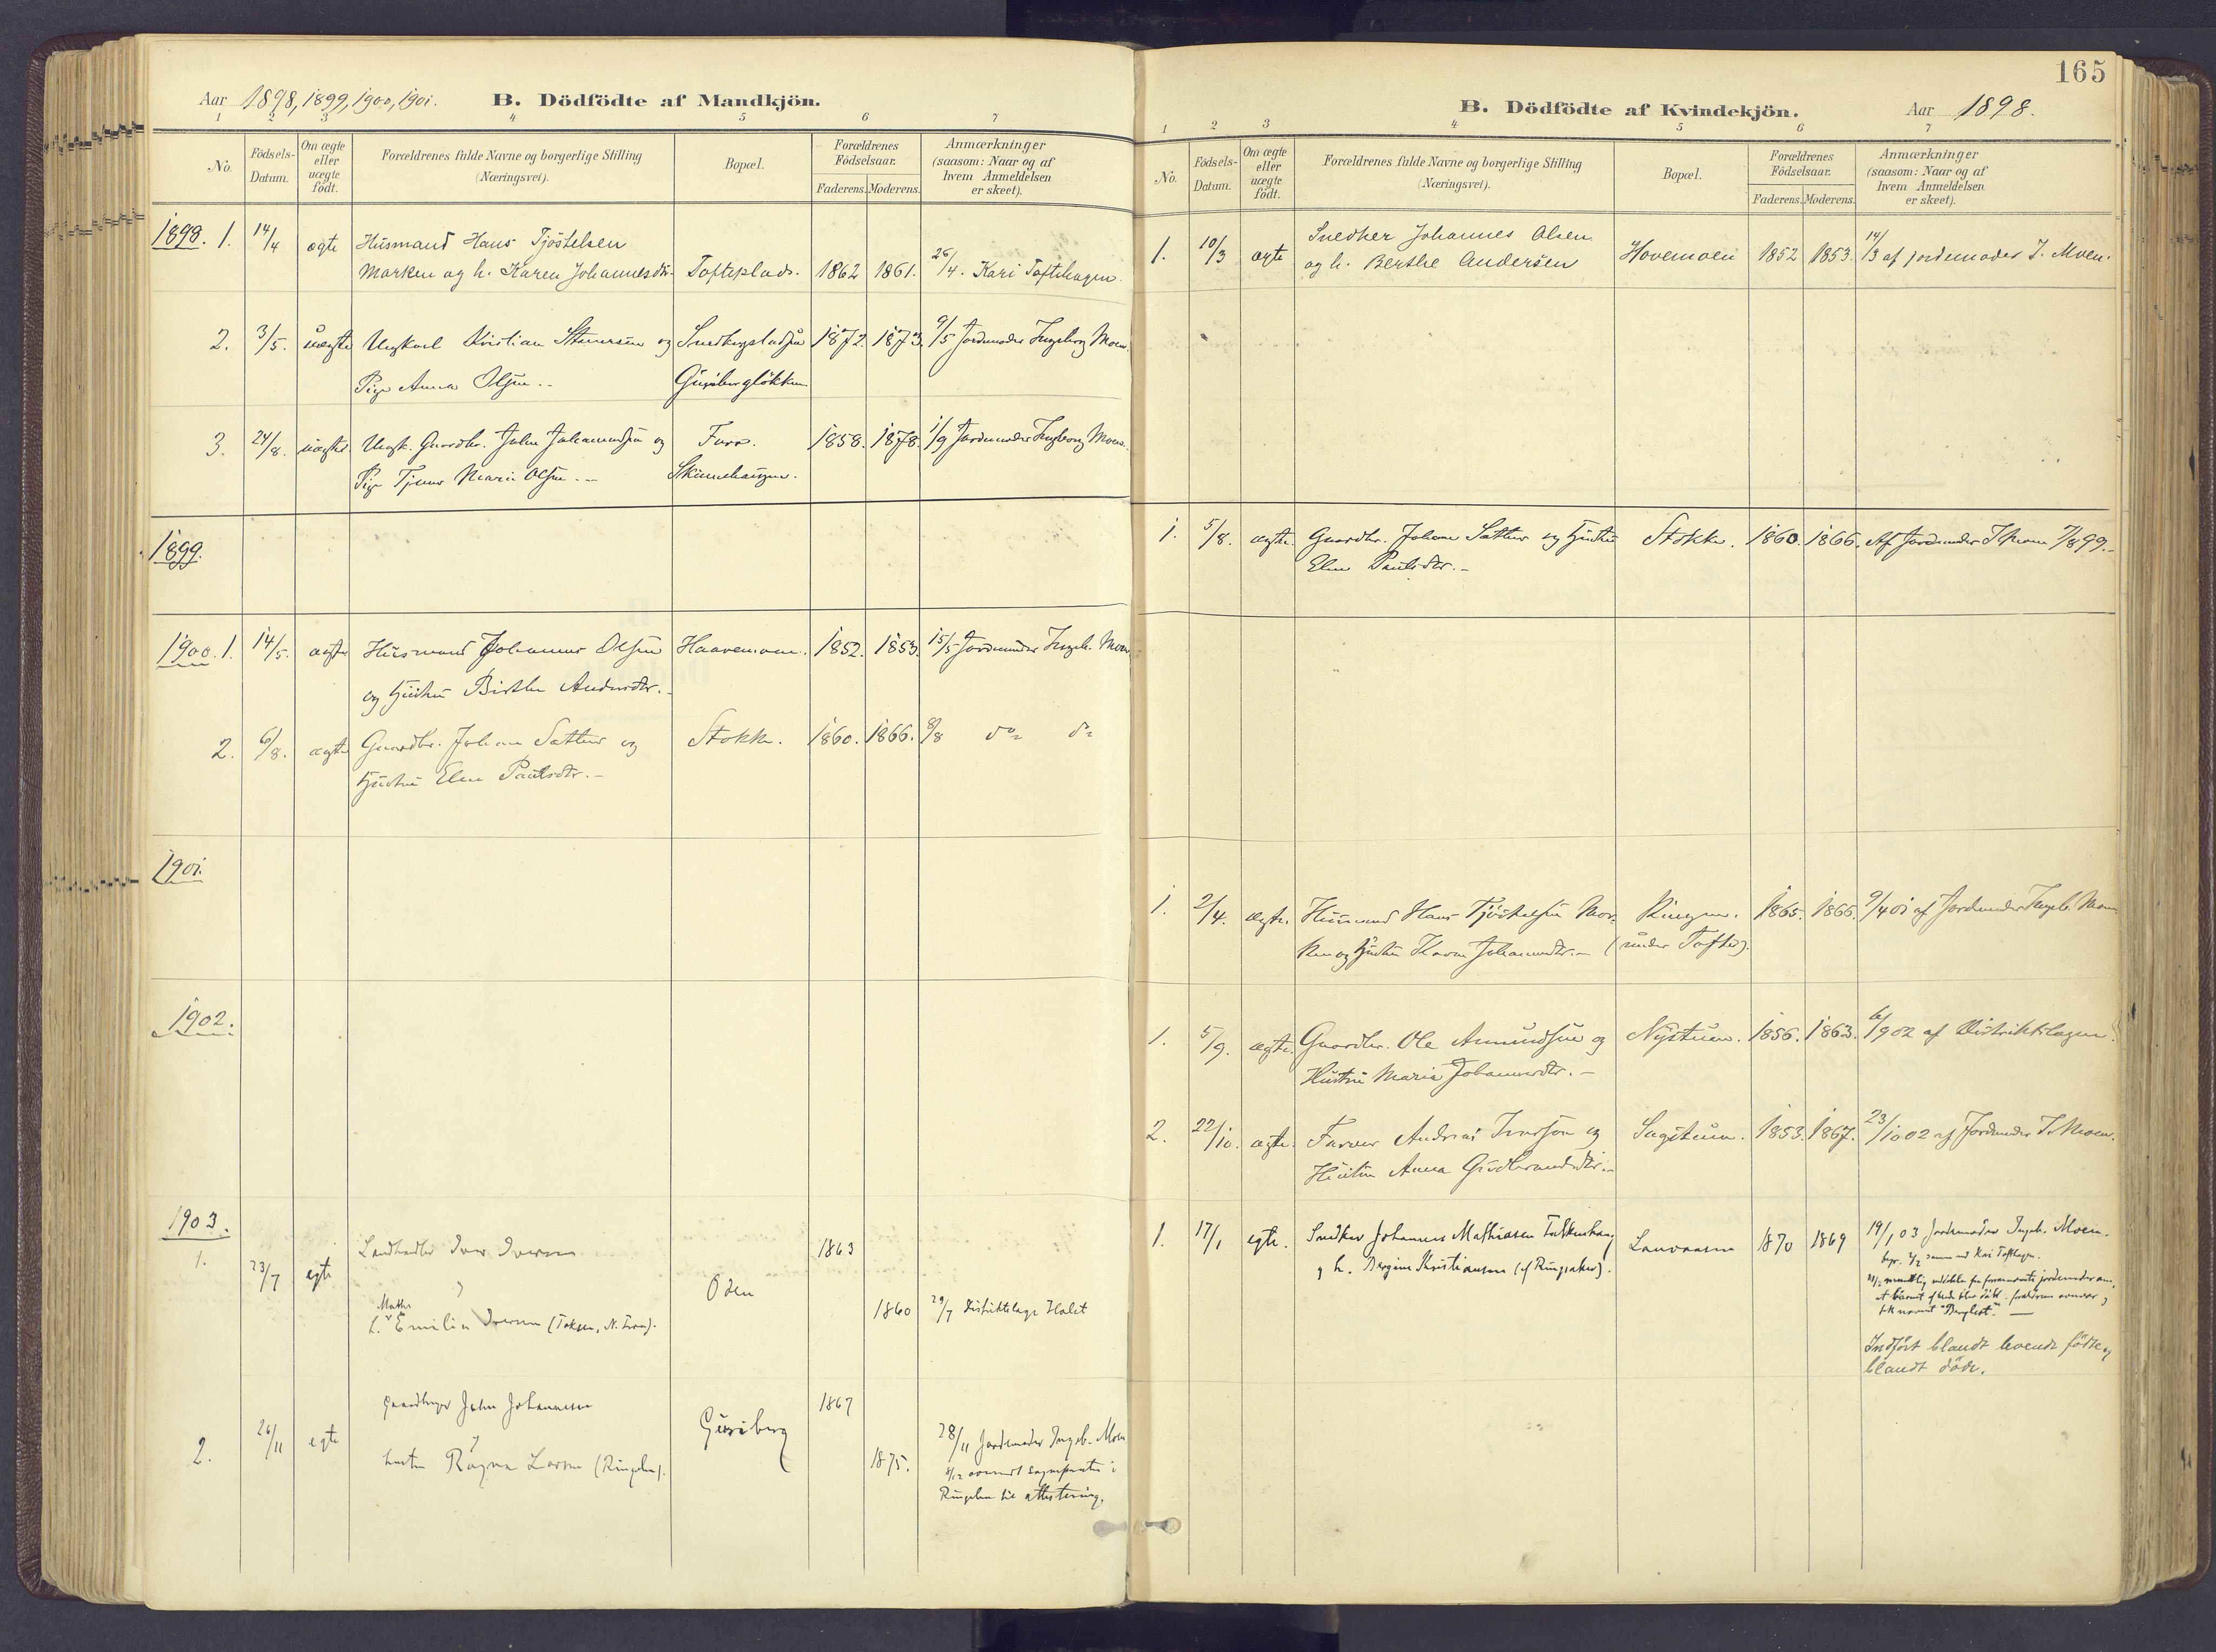 Aar 1898, 1899, 1900, 1901. B. Dödfödte af Mandkjön.
1 2 3 4 5 6 7
No.
Födsels-Datum.
Om ægte eller uægte födt.
Forældrenes fulde Navne og borgerlige Stilling (Næringsvei).
Bopæl.
Forældrenes Födselsaar.
Faderens. Moderens.
Anmærkninger (saasom: Naar og af hvem Anmeldelsen er skeet).
1898. 1. 14/4 ægte Husmand Hans Tjöstelsen
Marken og h. Karen Johannesdtr. Tofteplads. 1862 1861. 26/4. Kari Toftehagen.
2. 3/5. uægte Ungkarl Kristian Stenersen og 1872. 1873. 9/5 Jordmoder Ingeborg Moen.
Pige Anna Olsen.-
3. 24/8. uægte Ungk. Gaardbr. John Johannessen og Furu. 1858. 1878. 1/9 Jordmoder Ingeborg Moen.
Pige Marie Olsen.- Skindhaugen.
1899.
1900. 1. 14/5. ægte Husmand Johannes Olsen Haavemoen. 1852. 1853. 15/5 Jordmoder Ingeb. Moen
og Hustru Birthe Andersdtr.-
2. 6/8. ægte Gaardbr. Johan Sætter og Stokke. 1860. 1866. 8/8 do do
Hustru Elen Paulsdtr.-
1901.
1902.
1903.
1. 23/7 egte Landhandler Iver Iversen 1863
Oden
h. Mathe Emilie Iversen 1860 29/7 Distriktslæge Holst
2. 26/11 egte Gaardbruger John Johannesen Gusiberg 1867
hustru Ragna Larsen 1875. 28/11 Jordemoder Ingeb. Moen
til attestering.
165
B. Dödfödte af Kvindekjön. Aar 1898.
1 2 3 4 5 6 7
No.
Födsels-Datum.
Om ægte eller uægte födt.
Forældrenes fulde Navne og borgerlige Stilling (Næringsvei).
Bopæl.
Forældrenes Födselsaar.
Faderens. Moderens.
Anmærkninger (saasom: Naar og af hvem Anmeldelsen er skeet).
1. 10/3 ægte Snedker Johannes Olsen
og h. Berthe Andersen Hovemoen 1852 1853. 14/3 af jordemoder I. Moen.
1. 5/8. ægte. Gaardbr. Johan Sætter og Hustru Stokke. 1860. 1866. Af Jordmoder I. Moen 7/8 99.-
Elen Paulsdtr.-
1. 2/4. ægte. Husmand Hans Tjöstelsen Mar- Ringen. 1865. 1866. 9/4 01 af Jordmoder Ingeb. Moen
ken og Hustru Karen Johannesdtr.- (under Tofte).
1. 5/9. ægte. Gaardbr. Ole Amundsen og Nystuen. 1856. 1863. 6/9 02 af Distriktslægen.
Hustru Marie Johannesdtr.-
2. 22/10. ægte. Farver Andreas Iversen og Sagstuen. 1853. 1867. 23/10 02 af Jordmoder I. Moen.
Hustru Anna Gudbrandsdtr.-
1. 17/1 egte. Snedker Johannes Mathiasen 1870 1869 19/1 03 Jordemoder Ingeb. Moen.
og h. Bergine Kristiansen (f Ringsaker).
Indført blandt levende fødte og
blandt døde.